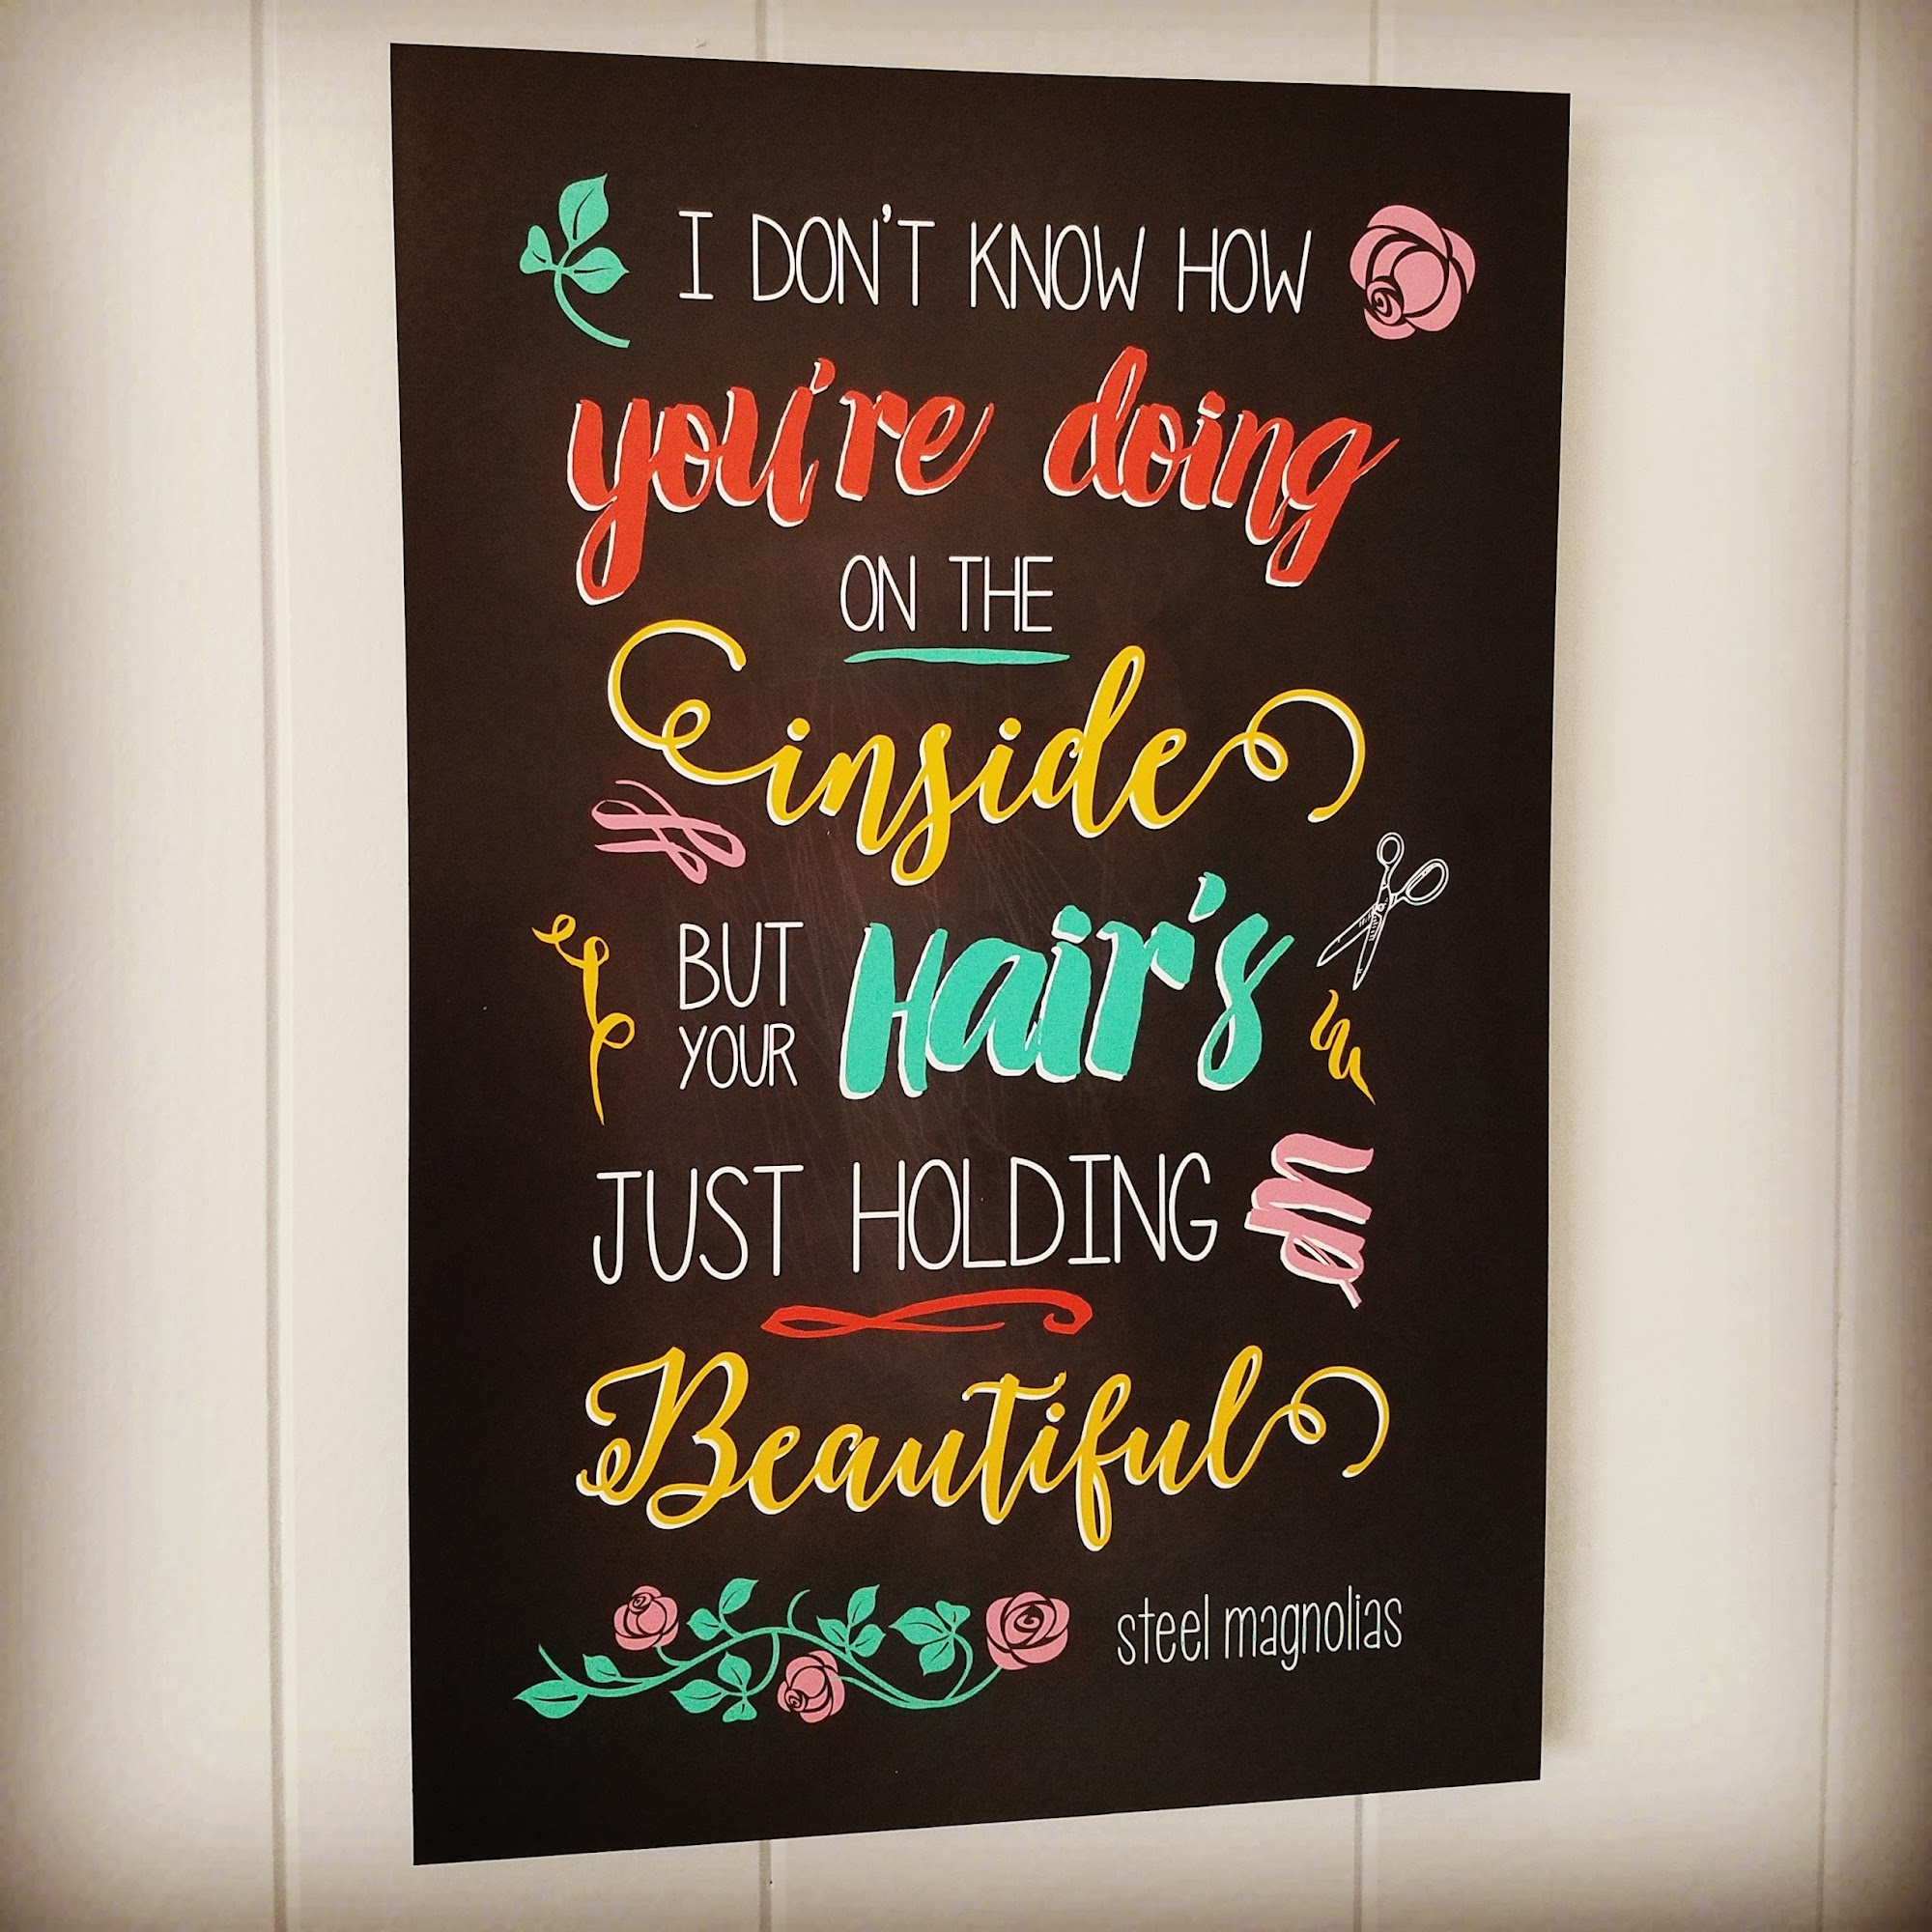 I DON'T KNOW HOW
you're doing
ON THE
inside
BUT
YOUR Hair's
JUST HOLDING up
Beautiful
steel magnolias